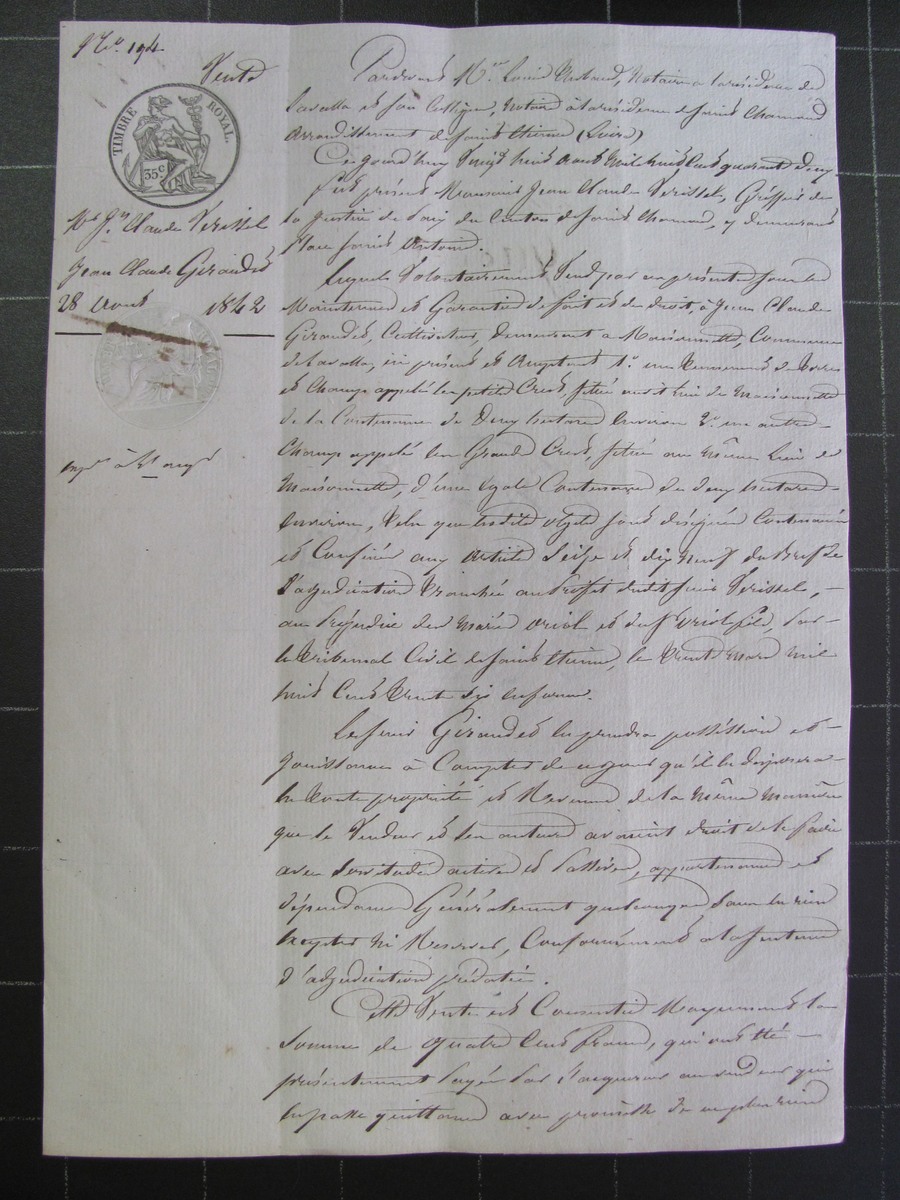 Vente
TIMBRE ROYAL.
35 c
Mr Jn Claude Verissel
Jean Claude Giraudet
28 aout 1842
Pardevant Me Louis notaire a la résidence de
Lavalla et son collègue, notaire à la résidence de Saint Chamond
arrondissement de Saint Etienne (Loire)
Ce jourd'huy vingt huit aout mil huit cent quarante deux
fut présent Monsieur Jean Claude Verissel, Greffier de
la justice de paix du canton de Saint Chamond, y demeurant
place Saint
Lequel volontairement vend par ces présentes sous la
maintenue et garantie de fait et de droit, à Jean Claude
Giraudet, cultivateur, demeurant a Maisonnette, commune
de Lavalla, ici présent et acceptant 1o un tennement de terre
et champ appelé les petits Crets, situé audit lieu de Maisonnette
de la contenance de deux hectares environ 2o un autre
champ appelé les Grand Crets, situé au même lieu de
Maisonnette, d'une égale contenance de deux hectares
environ, tels que lesdits objets sont désignés contenancés
et confinés aux articles seize et dix neuf du
d'adjudication tranchée au profit dudit sieur Verissel,
au préjudice des mariés Oriol et du sr Oriol fils, par
le tribunal civil de Saint Etienne, le trente mars mil
huit cent trente six en forme.
Le sieur Giraudet en prendra possession et
jouissance à compter de ce jour qu'il en disposera
en toute propriété et revenu de la même manière
que le vendeur et les auteurs avaient droit de le faire
avec servitudes actives et passives, appartenances et
dépendances généralement quelconques sans en rien
excepter ni reserver, conformément a la sentence
d'adjudication prédatée.
Cette vente est consentie moyennant la
somme de quatre cent francs, qui ont été
présentement payés par l'acquéreur au vendeur qui
en passe quittance avec promesse de ne plus rien